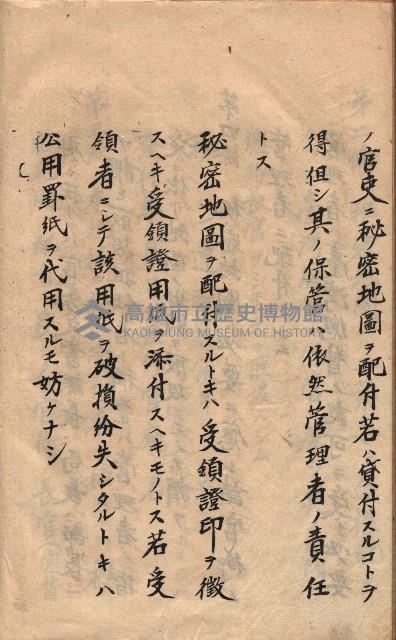 ノ官吏ニ秘密地圖ヲ配付若ハ貸付スルコトヲ
得但シ其ノ保管ハ依然管理者ノ責任
トス
秘密地圖ヲ配付スルトキハ受領證印ヲ徴
スヘキ受領證用紙ヲ添付スヘキモノトス若受
領者ニシテ該用紙ヲ破損紛失シタルトキハ
公用罫紙ヲ代用スルモ妨ケナシ
高雄市立歷史博物館
KAOHSIUNG MUSEUM OF HISTORY